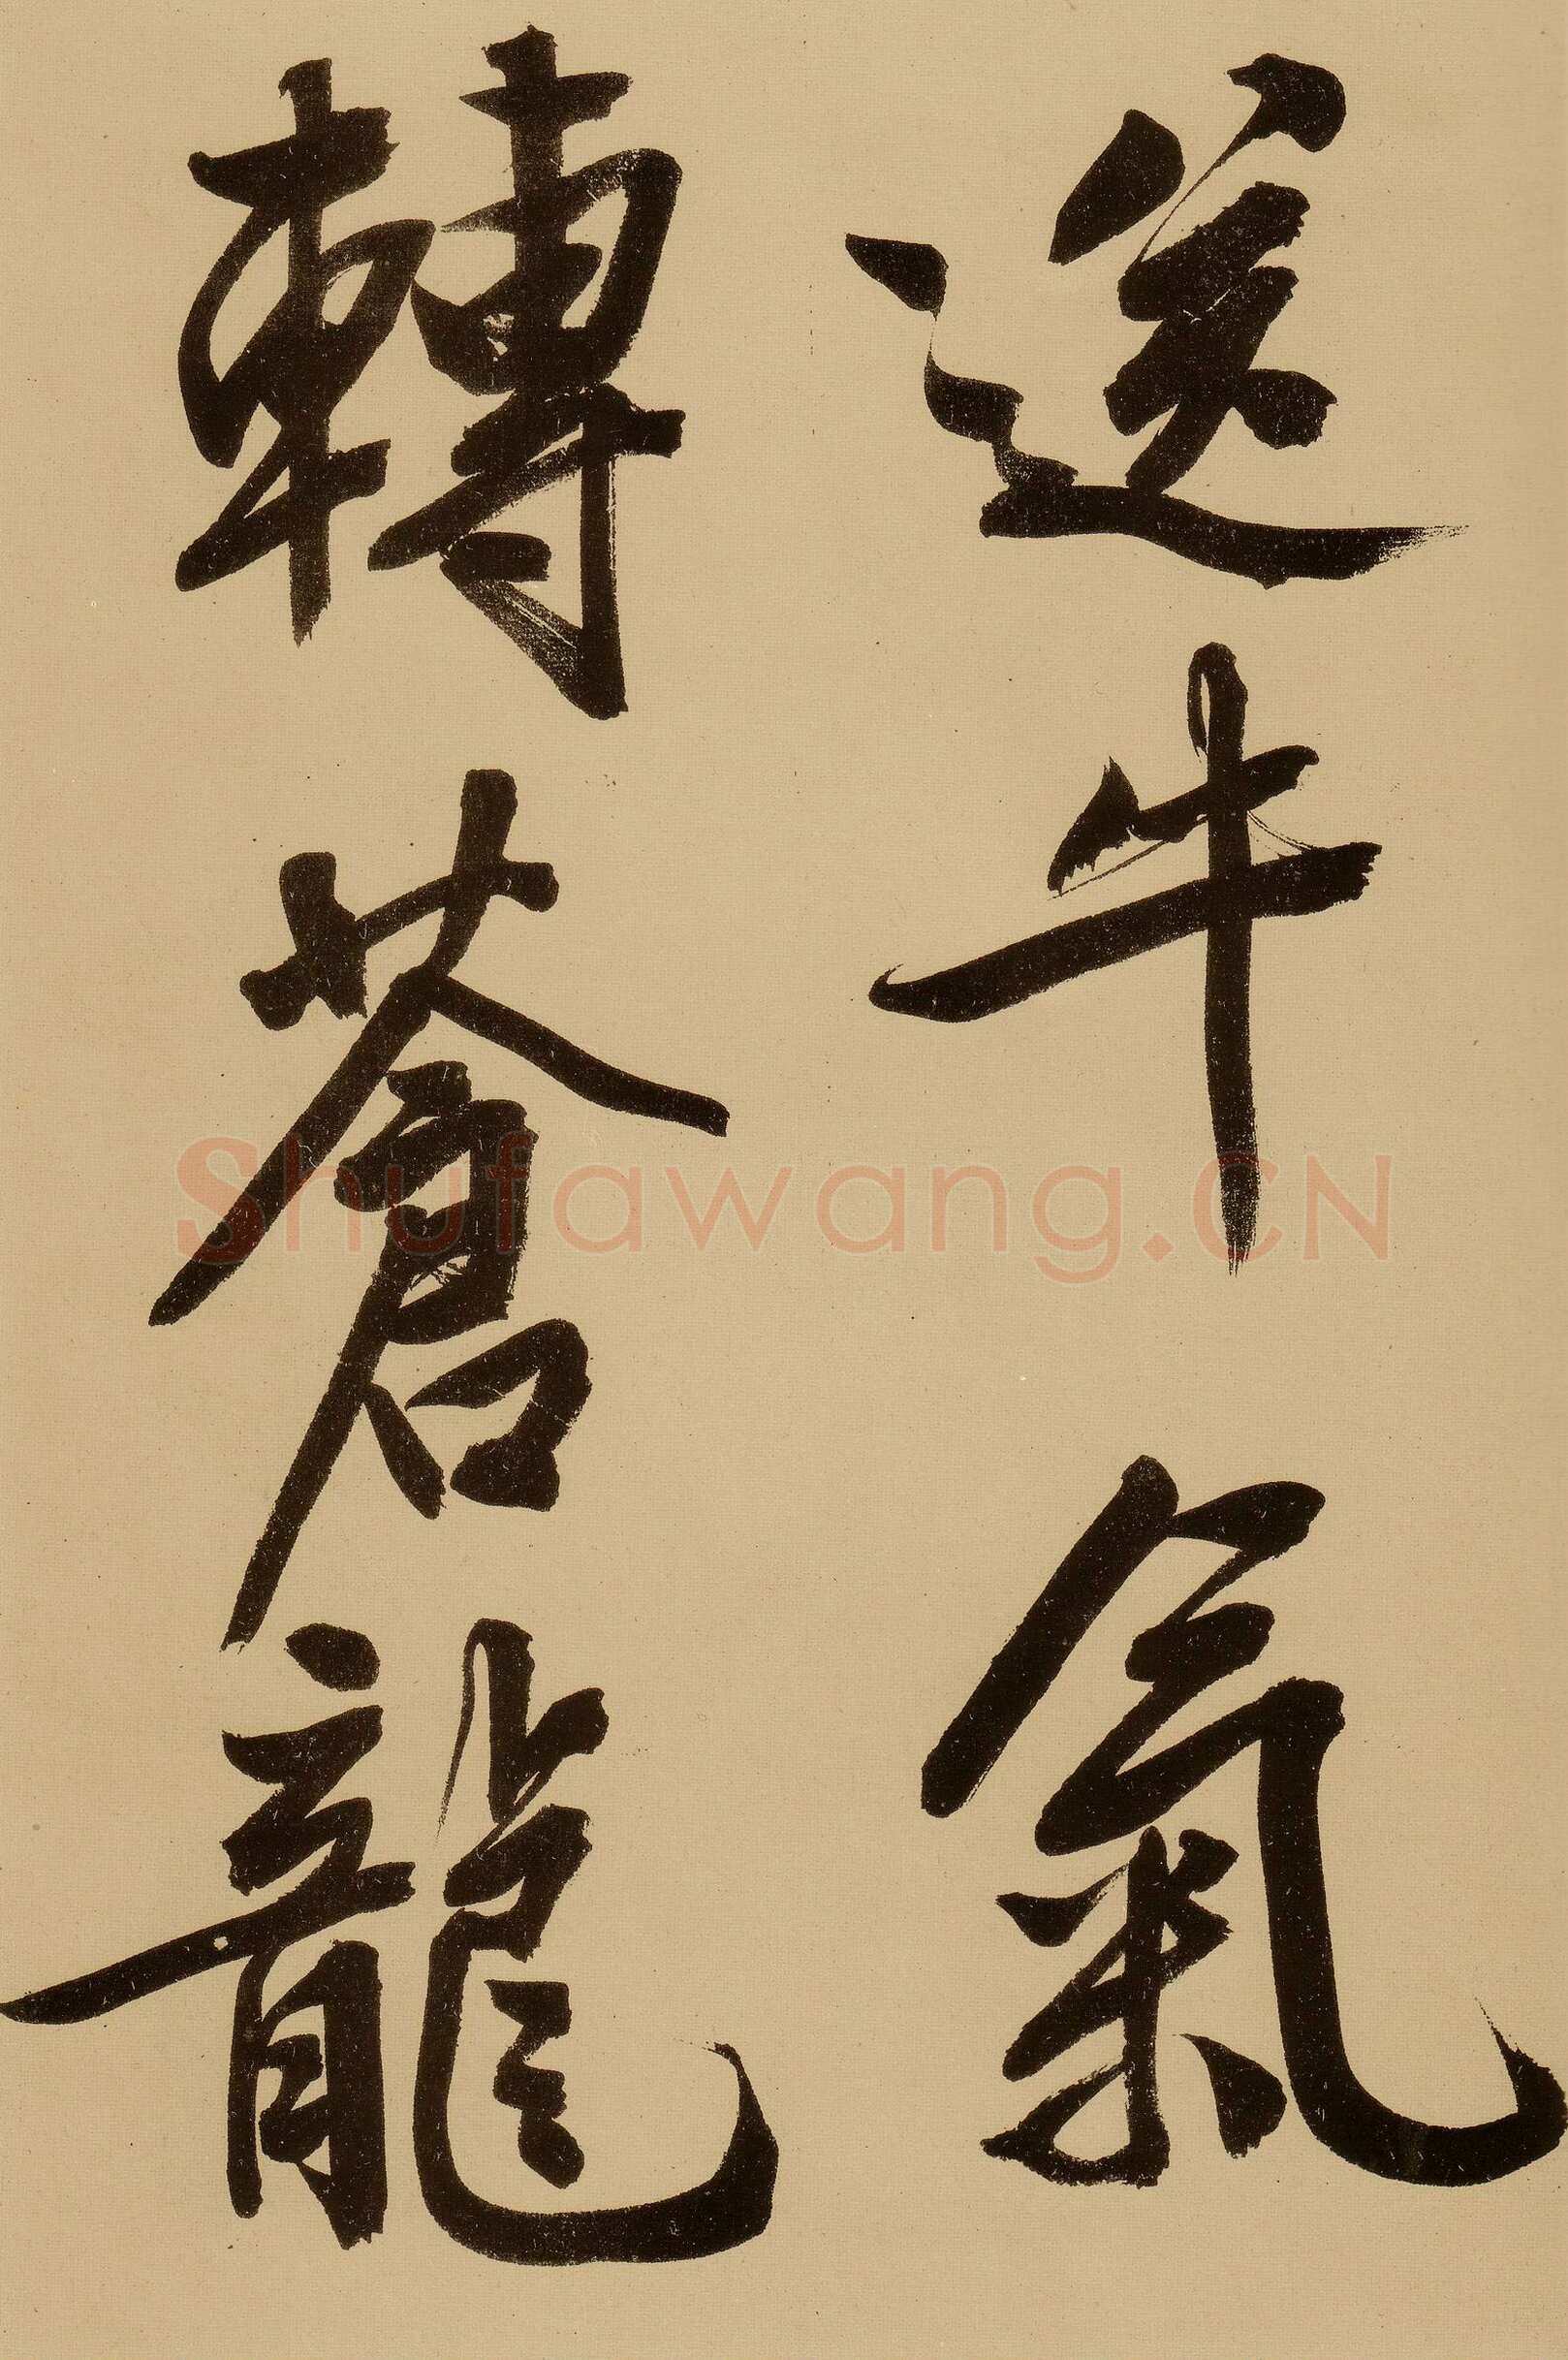 送牛氣
轉蒼龍
Shufawang.CN